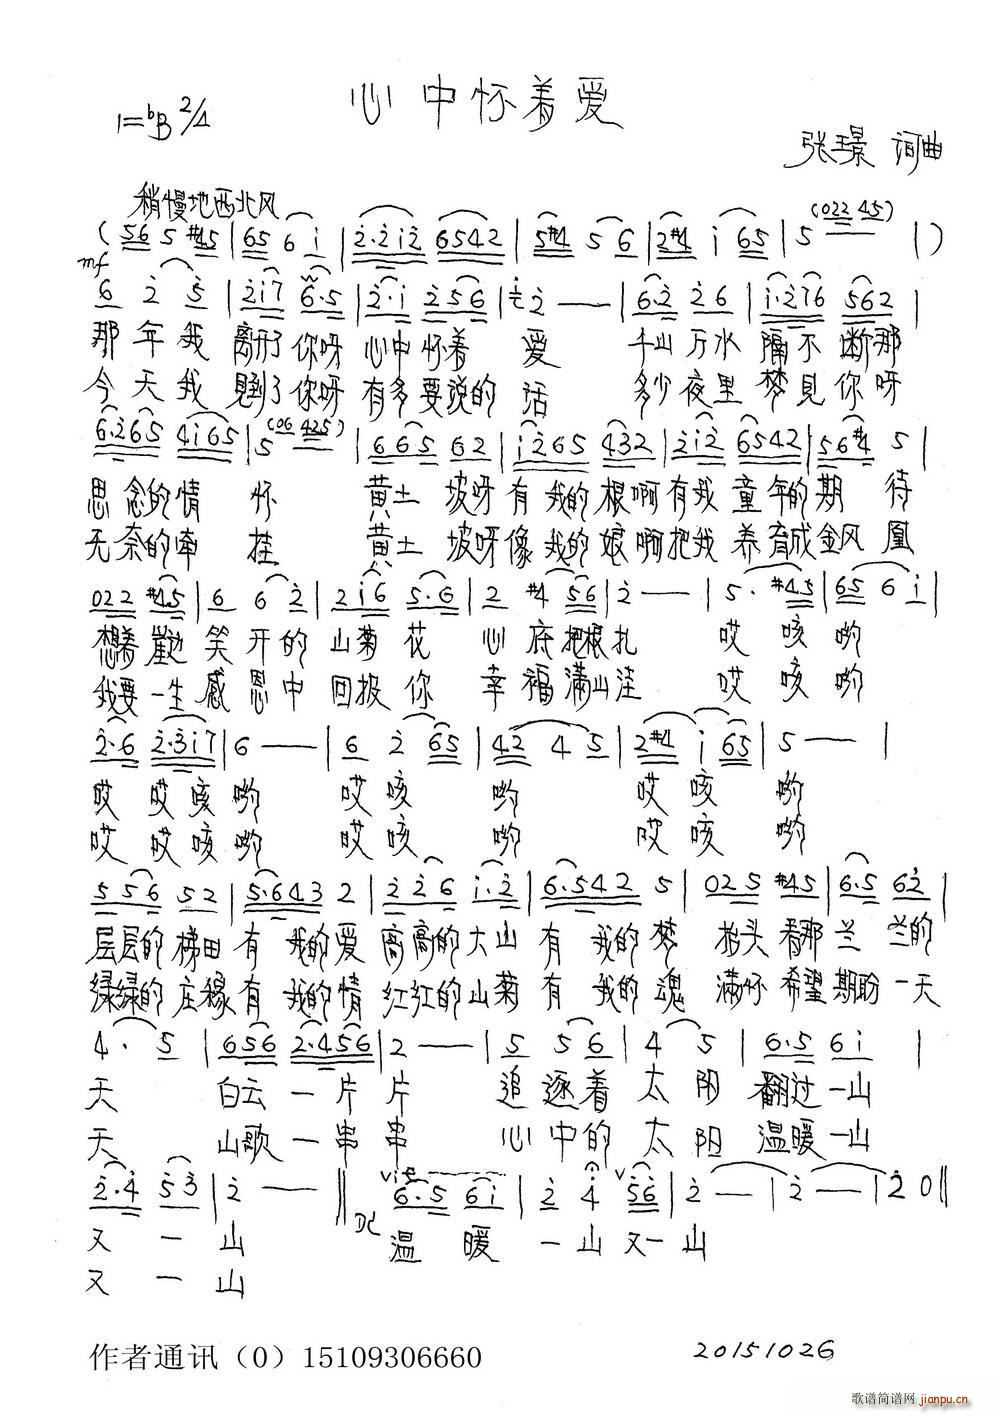 心中怀着爱
1=bB 2/4
张璟 词曲
稍慢地西北风
(56 5 #45 | 65 6 i | 2·2i2 6542 | 5#4 5 6 | 2#4 i 65 | 5 (022 45) | )
mf
6 2 5 | 2i7 6·5 | 2·i 256 | 2 — — | 6·2 26 | i·276 562 |
那年我 离开了你呀 心中怀着 爱 千山万水 隔不断那
今天我 见到了你呀 有多要说的 话 多少夜里 梦見你呀
6·265 4i65 | 5 (06 425) | 665 62 | i265 432 | 2i2 6542 | 56#4 5 |
思念的情 怀 黄土 坡呀有 我的根啊有我 童年的期 待
无奈的牵 挂 黄土 坡呀像 我的娘啊把我 养育成金凤 凰
022 #45 | 6 6 2 | 2i6 5·6 | 2 #4 56 | 2 — — | 5· #45 | 65 6 i |
想着 笑开的 山菊花 心底把根扎 哎 咳 哟
我要一生 感恩中 回报你 幸福满山洼 哎 咳 哟
2·6 2·3i7 | 6 — — | 6 2 65 | 42 4 5 | 2#4 i 65 | 5 — — |
哎 哎咳 哟 哎咳 哟 哎咳 哟
哎 哎咳 哟 哎咳 哟 哎咳 哟
556 52 | 5·643 2 | 226 i·2 | 6·542 5 | 025 #45 | 6·5 62 |
层层的梯田 有 我的爱 高高的大山 有 我的梦 抬头看那兰 兰的
绿绿的庄稼 有 我的情 红红的山菊 有 我的魂 满怀希望期盼一天
4· 5 | 656 2·456 | 2 — — | 5 5 6 | 4 5 | 6·5 6i |
天 白云一片片 追逐着 太阳 翻过一山
天 山歌一串串 心中的 太阳 温暖一山
2·4 53 | 2 — — ‖ 6·5 6i | 2 4 56 | 2 — | 2 — | 20 ‖
DC
又一山 温暖一山又一山
又一山
作者通讯（0）15109306660
20151026
歌谱简谱网
jianpu.cn